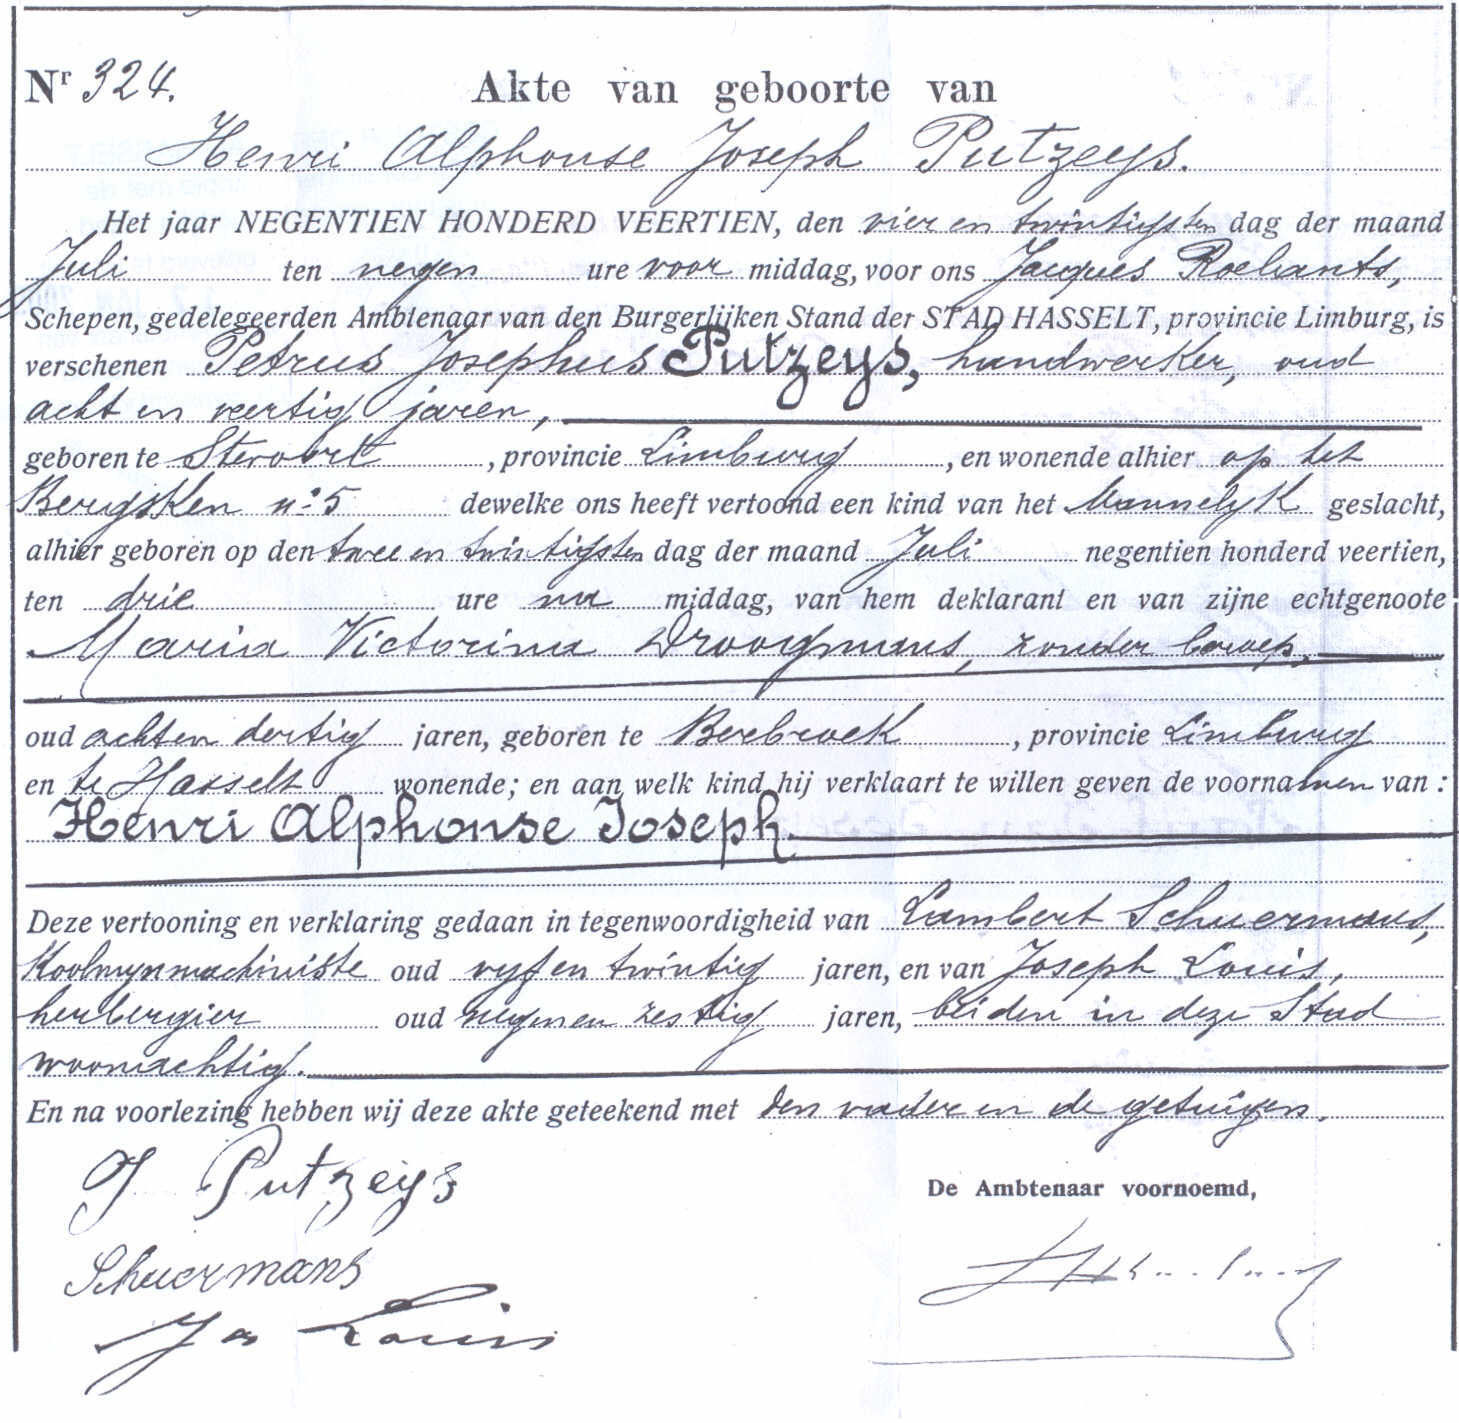 Nr 324. Akte van geboorte van
Henri Alphonse Joseph Putzeys.
Het jaar NEGENTIEN HONDERD VEERTIEN, den vier en twintigsten dag der maand
Juli ten negen ure voor middag, voor ons Jacques Roelants,
Schepen, gedelegeerden Ambtenaar van den Burgerlijken Stand der STAD HASSELT, provincie Limburg, is
verschenen Petrus Josephus Putzeys, handwerker, oud
acht en veertig jaren,
geboren te Stevoort, provincie Limburg, en wonende alhier op het
Bergsken n° 5 dewelke ons heeft vertoond een kind van het Mannelyk geslacht,
alhier geboren op den twee en twintigsten dag der maand Juli negentien honderd veertien,
ten drie ure na middag, van hem deklarant en van zijne echtgenoote
Maria Victorina Droogmans, zonder beroep,
oud acht en dertig jaren, geboren te Berbroek, provincie Limburg
en te Hasselt wonende; en aan welk kind hij verklaart te willen geven de voornamen van :
Henri Alphonse Joseph.
Deze vertooning en verklaring gedaan in tegenwoordigheid van Lambert Schuermans,
Koolmynmachiniste oud vyf en twintig jaren, en van Joseph Louis,
herbergier oud negen en zestig jaren, beiden in deze Stad
woonachtig.
En na voorlezing hebben wij deze akte geteekend met den vader en de getuigen.
J Putzeys
De Ambtenaar voornoemd,
Schuermans
Jos Louis